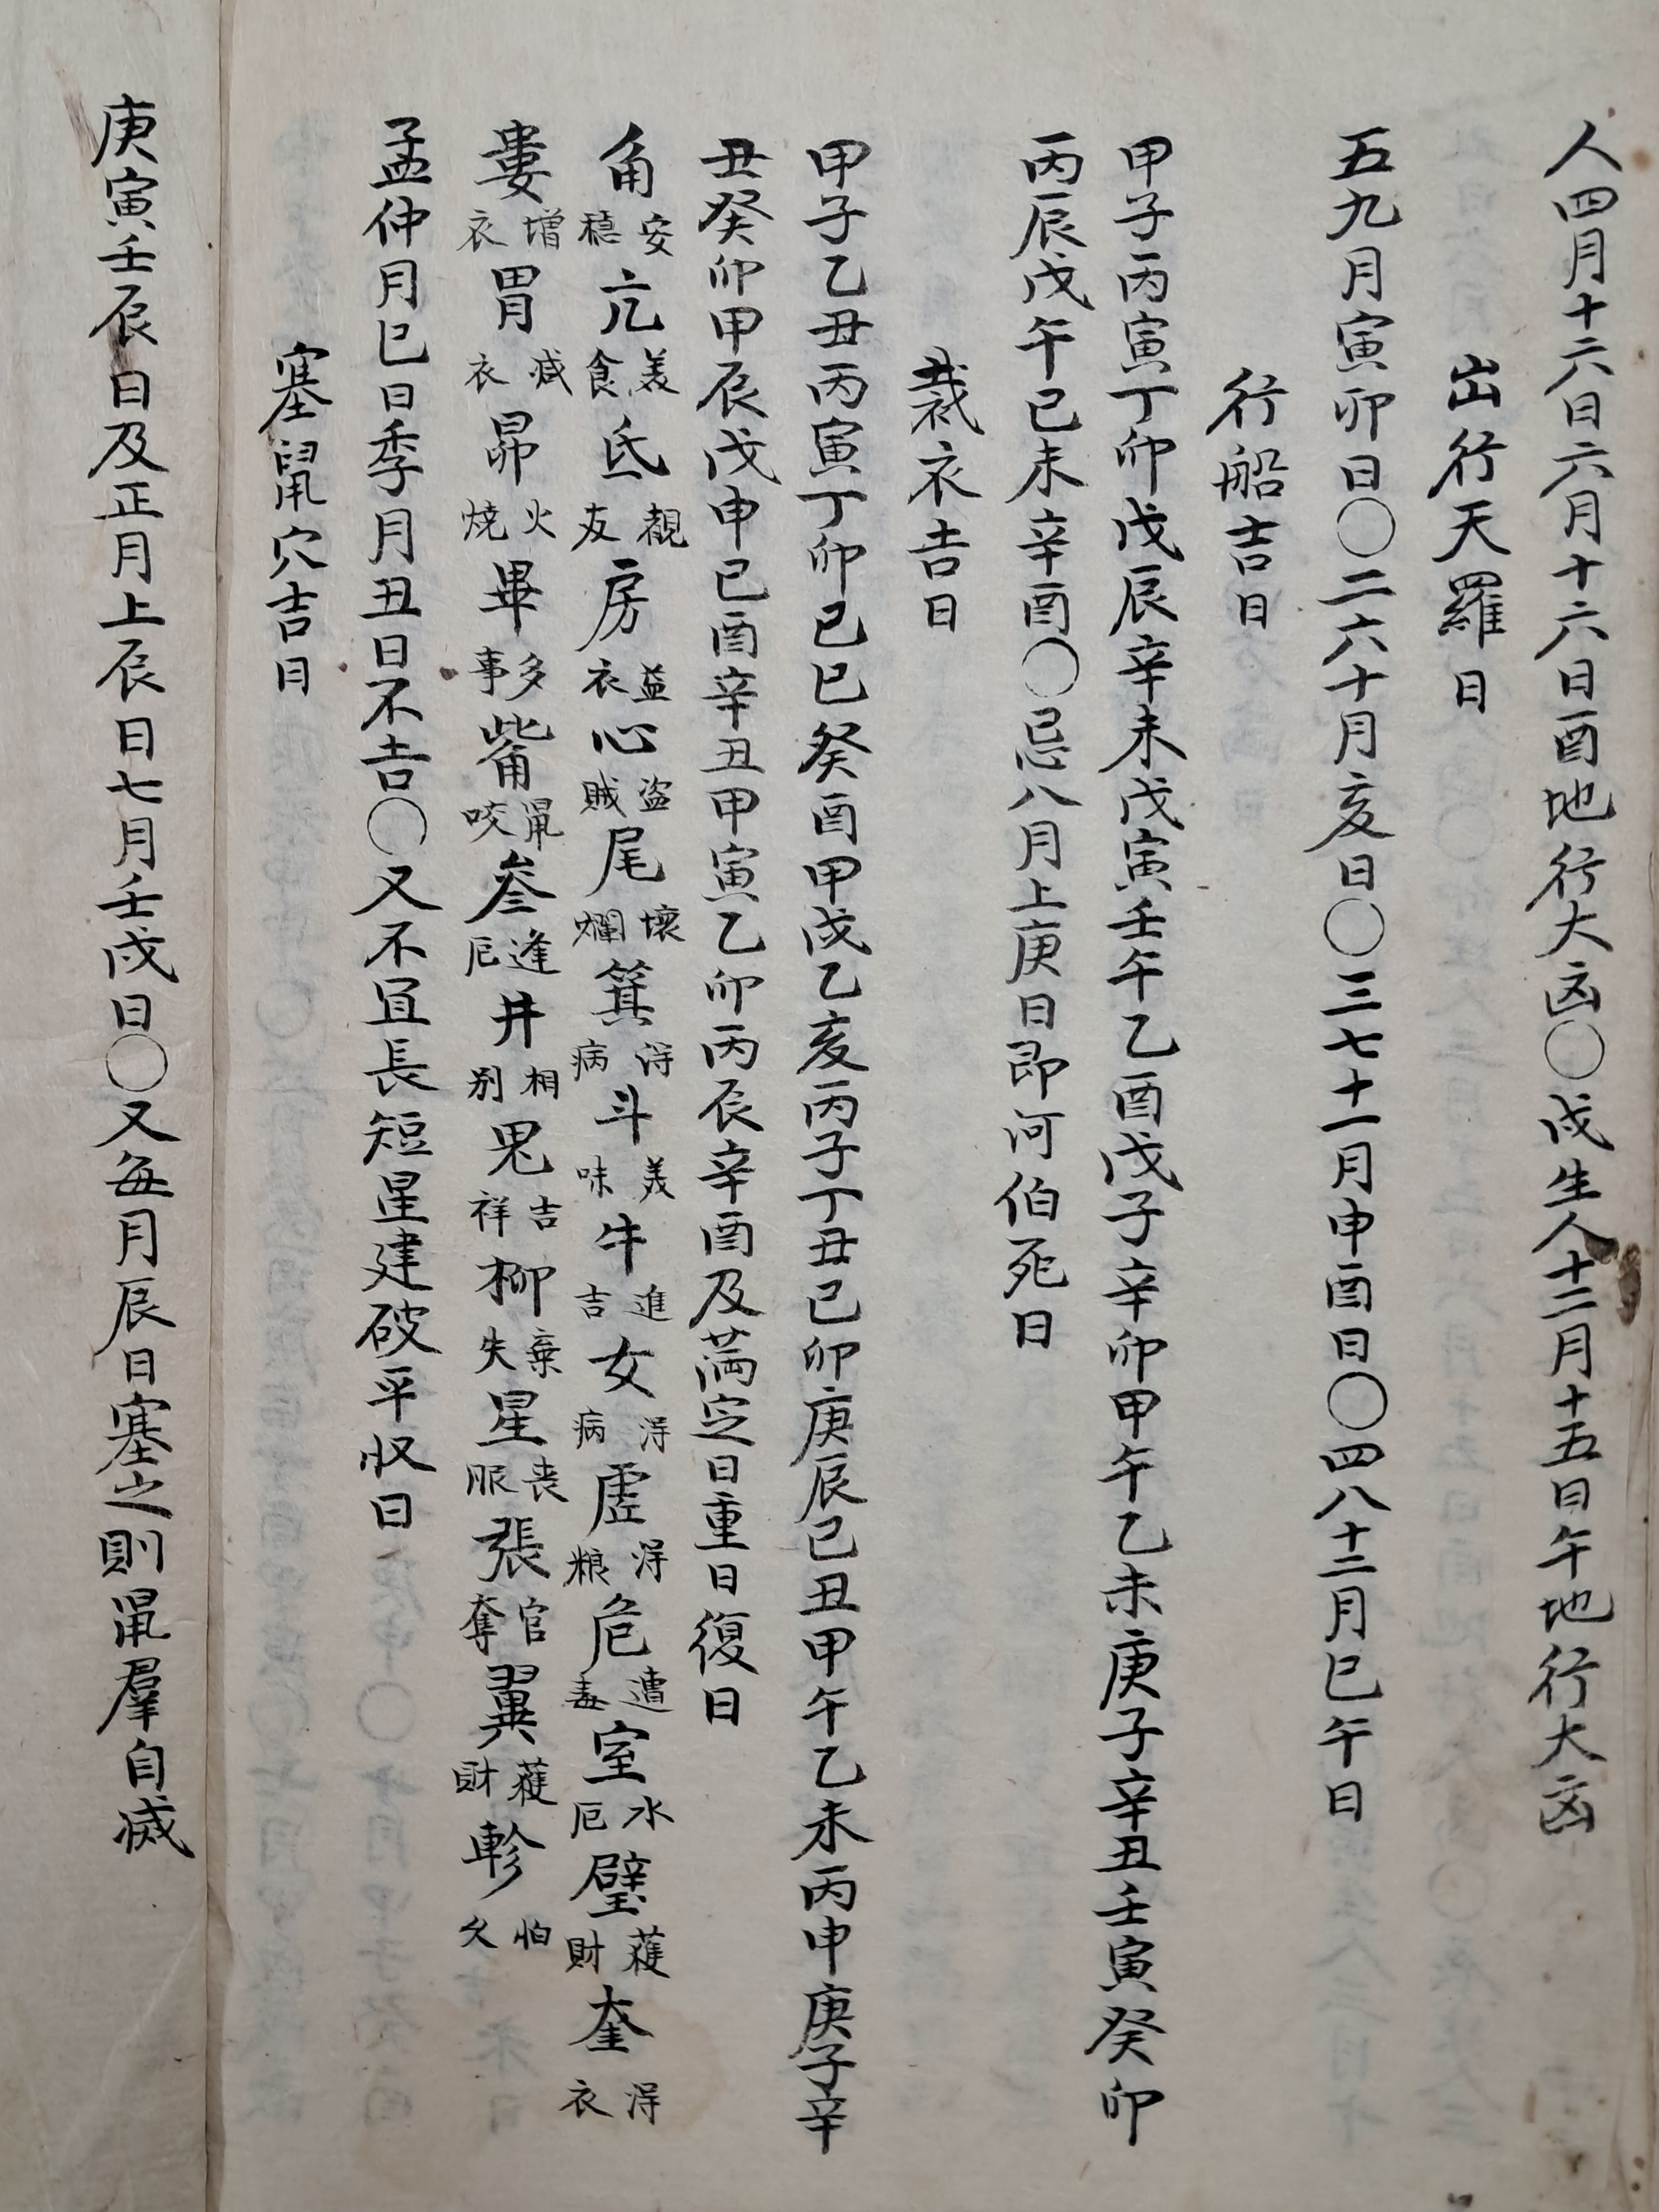 人四月十六日六月十六日酉地行大凶〇戌生人十二月十五日午地行大凶
出行天羅日
五九月寅卯日〇二六十月亥日〇三七十一月申酉日〇四八十二月巳午日
行船吉日
甲子丙寅丁卯戊辰辛未戊寅壬午乙酉戊子辛卯甲午乙未庚子辛丑壬寅癸卯
丙辰戊午己未辛酉〇忌八月上庚日即河伯死日
裁衣吉日
甲子乙丑丙寅丁卯己巳癸酉甲戌乙亥丙子丁丑己卯庚辰己丑甲午乙未丙申庚子辛
丑癸卯甲辰戊申己酉辛丑甲寅乙卯丙辰辛酉及滿定日重日復日
角安穩亢美食氐親友房益衣心盜賊尾壞爛箕得病斗美味牛進吉女得病虛得粮危遭毒室水厄壁獲財奎得衣
婁增衣胃減衣昴火燒畢多事觜鼠咬參逢厄井相別鬼吉祥柳棄失星喪服張官奪翼獲財軫怕久
孟仲月巳日季月丑日不吉〇又不宜長短星建破平收日
塞鼠穴吉日
庚寅壬辰日及正月上辰日七月壬戌日〇又每月辰日塞之則鼠羣自滅